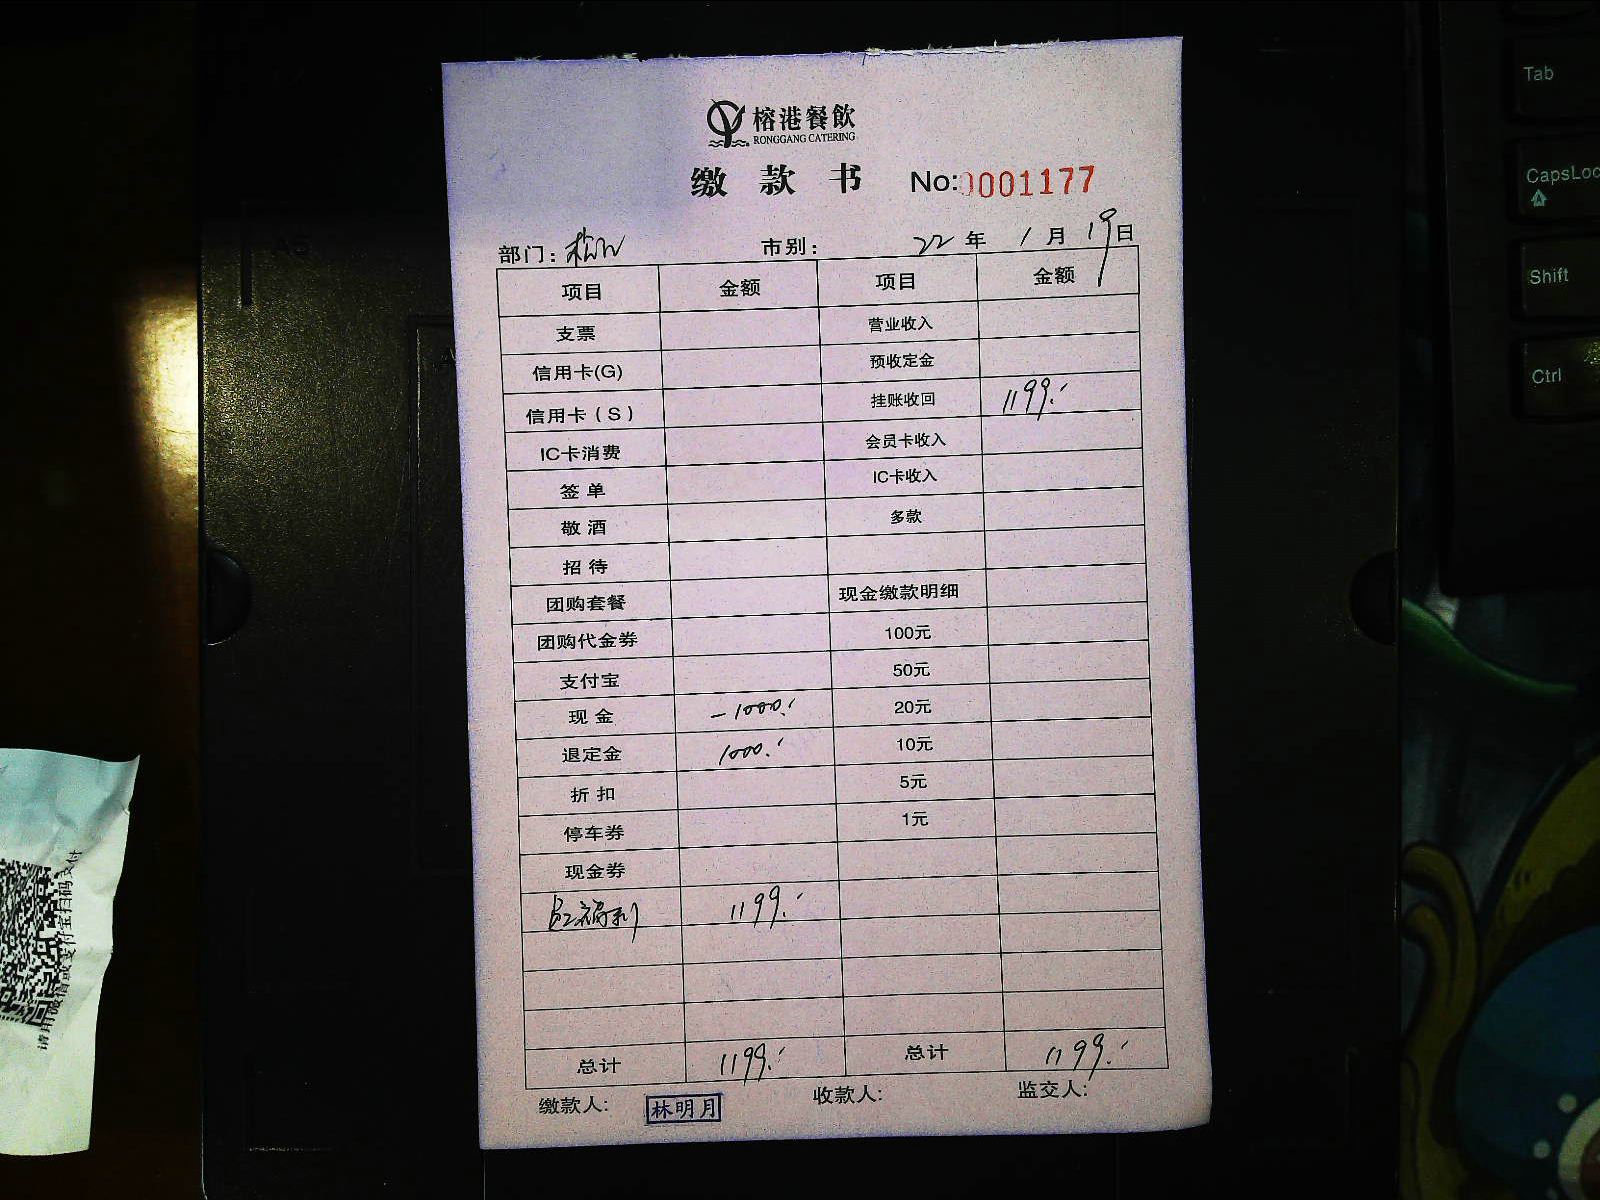 榕港餐飲
RONGGANG CATERING
缴款书 No:0001177
部门: 市别: 22年 1月 19日
项目 金额 项目 金额
支票 营业收入
信用卡(G) 预收定金
信用卡(S) 挂账收回 1199.-
IC卡消费 会员卡收入
签单 IC卡收入
敬酒 多款
招待
团购套餐 现金缴款明细
团购代金券 100元
支付宝 50元
现金 -1000.- 20元
退定金 1000.- 10元
折扣 5元
停车券 1元
现金券
员工福利 1199.-
总计 1199.- 总计 1199.-
缴款人: 林明月 收款人: 监交人:
请用微信或支付宝扫码支付
Tab
CapsLoc
Shift
Ctrl